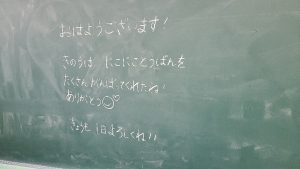 おはようございます!
きのうは にこにことうばんを
たくさんがんばってくれたね!
ありがとう☺♡
きょうも 1日よろしくね!!